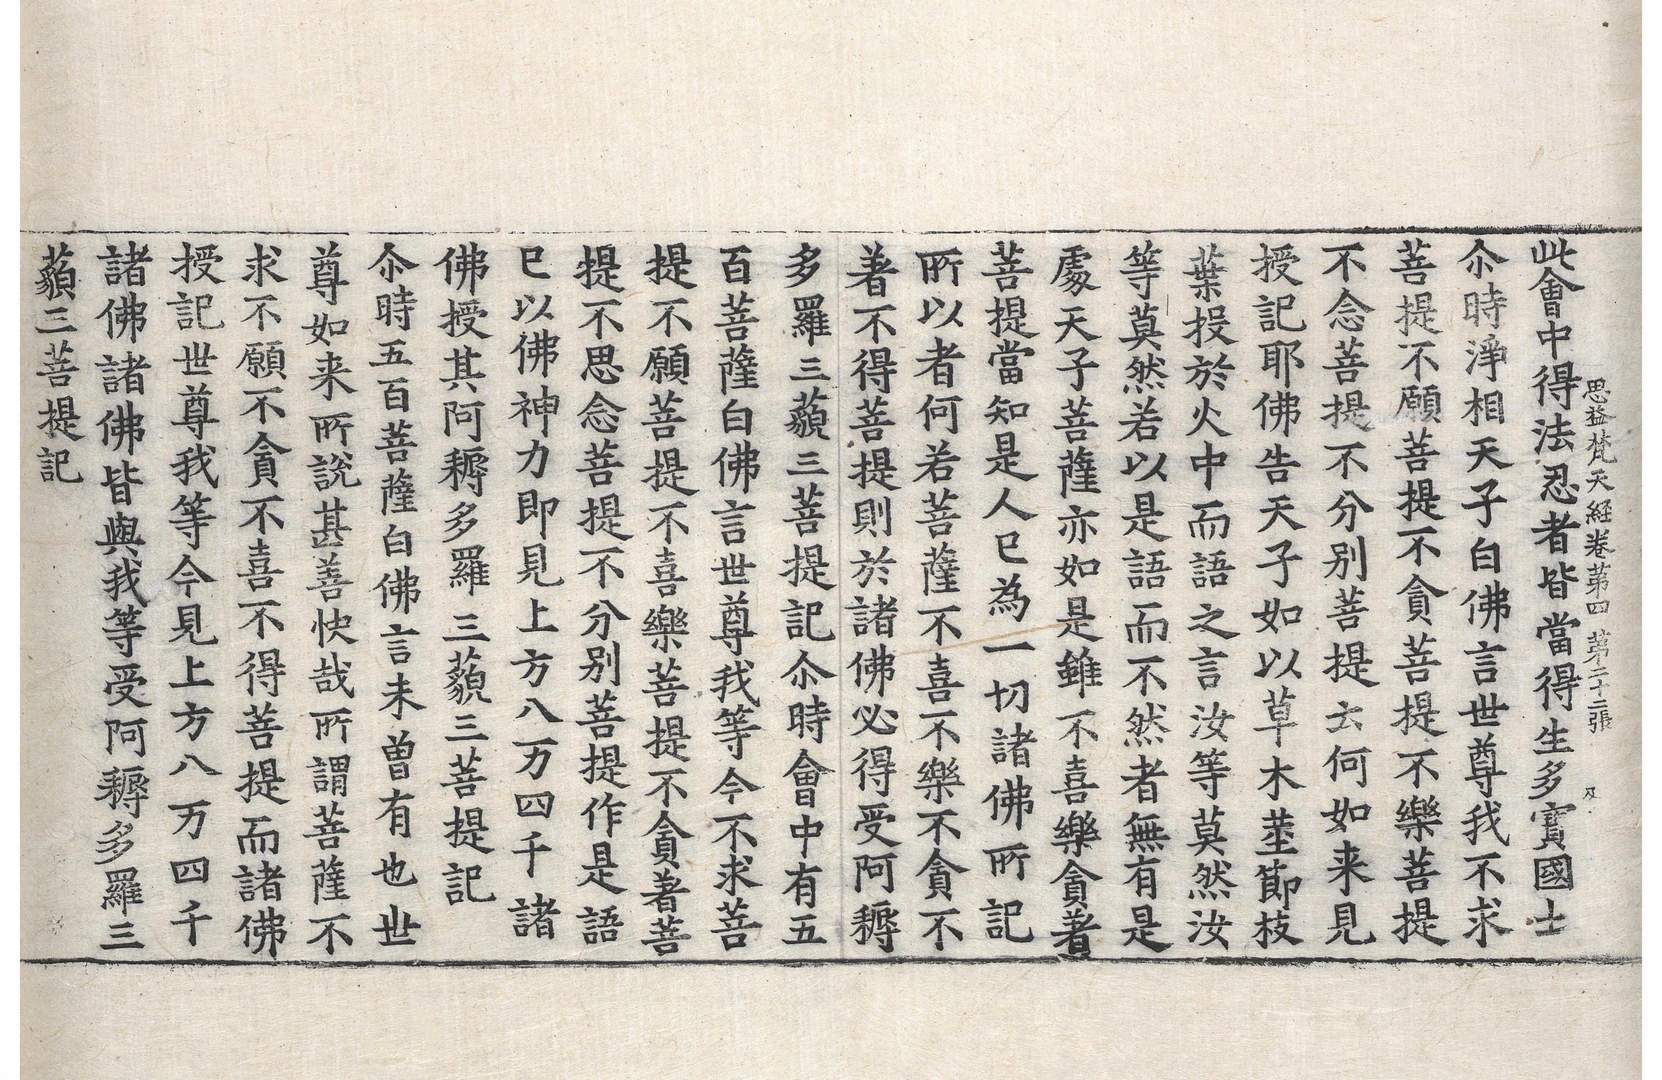 思益梵天経卷苐四　苐二十二張　才
此會中得法忍者皆當得生多寳國土
尒時淨相天子白佛言世尊我不求
菩提不願菩提不貪菩提不樂菩提
不念菩提不分别菩提云何如来見
授記耶佛告天子如以草木莖節枝
葉投於火中而語之言汝等莫然汝
等莫然若以是語而不然者無有是
處天子菩薩亦如是雖不喜樂貪著
菩提當知是人已為一切諸佛所記
所以者何若菩薩不喜不樂不貪不
著不得菩提則於諸佛必得受阿耨
多羅三藐三菩提記尒時會中有五
百菩薩白佛言世尊我等今不求菩
提不願菩提不喜樂菩提不貪著菩
提不思念菩提不分别菩提作是語
已以佛神力即見上方八万四千諸
佛授其阿耨多羅三藐三菩提記
尒時五百菩薩白佛言未曽有也世
尊如来所說甚善快哉所謂菩薩不
求不願不貪不喜不得菩提而諸佛
授記世尊我等今見上方八万四千
諸佛諸佛皆與我等受阿耨多羅三
藐三菩提記